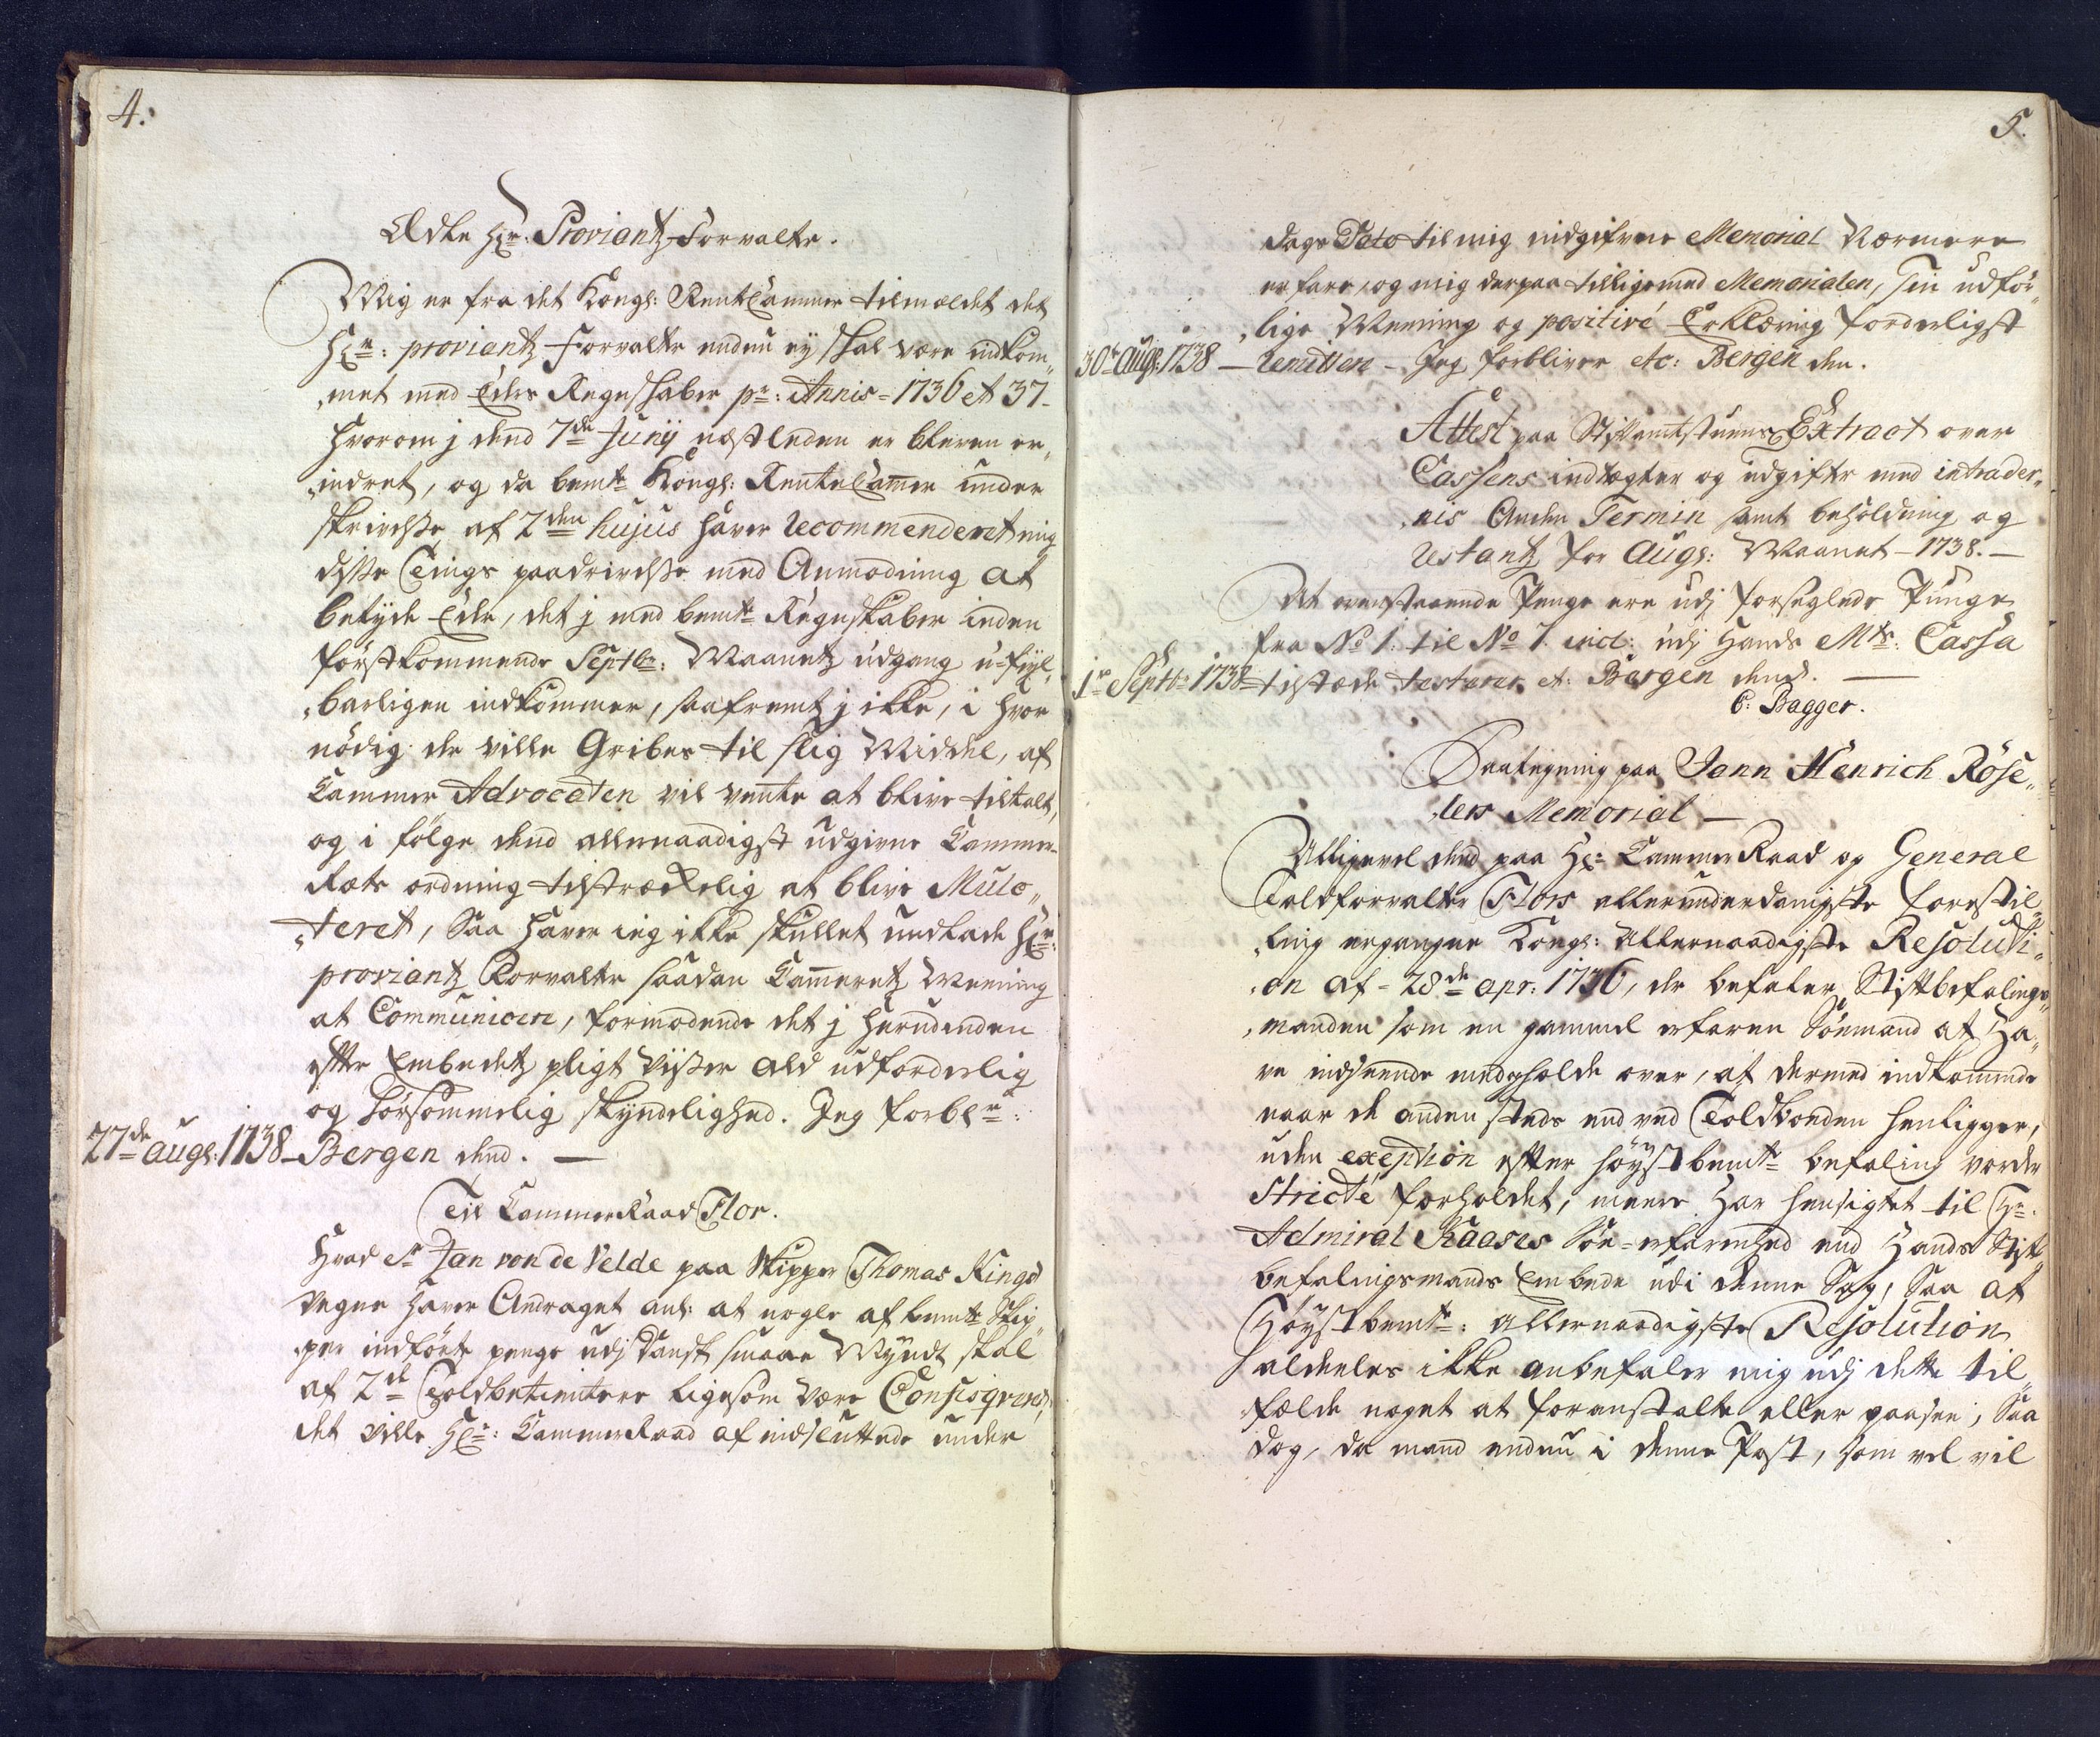 4.
Ædle Hr: Proviantz-Forvalter.
Mig er fra det Kongl: RentCammer tilmeldet det
Hr: proviantz-Forvalter endnu ey skal være indkom„
„met med Eders Regnskaber pr: Annis = 1736 et 37 -
hvorom j dend 7de Junij næstleden er bleven er„
„indret, og da bemte Kongl: RenteCammer under
skrivelsse af 2den hujus haver recommenderet mig
disse Tings paadrivelsse med Anmodning at
betyde Eder, det j med bemte Regnskaber inden
förstkommende Septbr: Maanetz udgang u-feyl„
„barligen indkommer, saafremt j ikke, i hvor
nödig de ville Gribes til slig Middel, af
Cammer Advocaten vil vente at blive tiltalt,
og i fölge dend allernaadigst udgivne Cammer-
Rets ordning tilstrækelig at blive Mulc„
„teret, Saa haver ieg ikke skullet undlade Hr:
proviantz Forvalter saadan Cammeretz Meening
at Communicere, formodende det j herudinden
efter Embedetz pligt viiser ald udforderlig
og hörsommelig skyndelighed. Jeg forblr:
27de augs: 1738 - Bergen dend. —
Til CammerRaad Flor.
Hvad Sr Jan von de Velde paa Skipper Thomas Kings
vegne haver Andraget anl: at nogle af bemte Skip„
„per indförte penge udj Dansk smaae Myndt skal
af 2de Toldbetientere ligesom være Confisqveret,
det ville Hr: CammerRaad af indsluttede under
5.
Dags Dato til mig indgifvne Memorial Nærmere
erfare, og mig derpaa tilligemed Memorialen, Sin udför„
„lige Meening og positive Erklæring forderligst
30te Augs: 1738 — remittere - Jeg forbliver etc: Bergen den.
Attest paa Stiftamtstuens Extract over
Cassens indtægter og udgifter med intrader„
„nis Anden Termin samt beholdning og
restantz for Augs: Maanet - 1738. —
At ovenstaaende Penge ere udj forseglede Punge
fra No 1. til No 7. incl: udj Hands Mts: Cassa
1te Septbr 1738 - tilstæde testerer et: Bergen dend. —
C: Bagger.
Paategning paa Jann Henrich Röse„
„lers Memorial —
Alligevel dend paa Hr: CammerRaad og General
Toldforvalter Flors allerunderdanigste forestil„
„ling ergangne Kongl: Allernaadigste Resoluti„
„on af - 28de apr: 1736, der befaler Stiftbefalings„
„manden som en gammel erfaren Söemand at Ha„
ve indseende med holde over, at dermed indkommende
naar de anden steds end ved Toldboden henligger,
uden exeption efter höystbemte befaling vorder
Stricté forholdet, meere har hensigtet til Hr.
Admiral Kaases Söe-erfarenhed end Hands Stift
befalingsmands Embede udi denne Sag, Saa at
Höystbemte: allernaadigste Resolution
aldeeles ikke anbefaler mig udj dette til„
„fælde noget at foranstalte eller paasee, Saa
dog, da mand endnu i denne Post, som vel vil